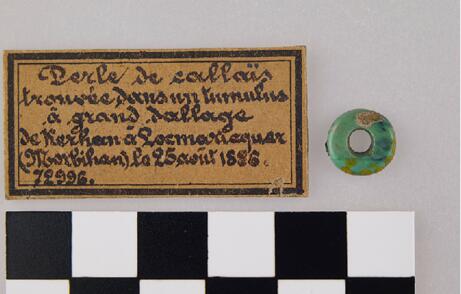 Perle de callaïs
trouvée dans un tumulus
à grand dallage
de à Locmariaquer
(Morbihan) le 25 août 1886.
72996.